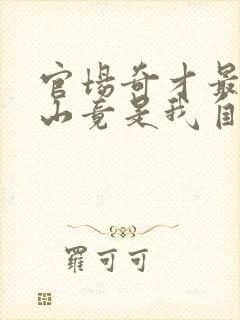 官场奇才最
山竟是我自
羅可可